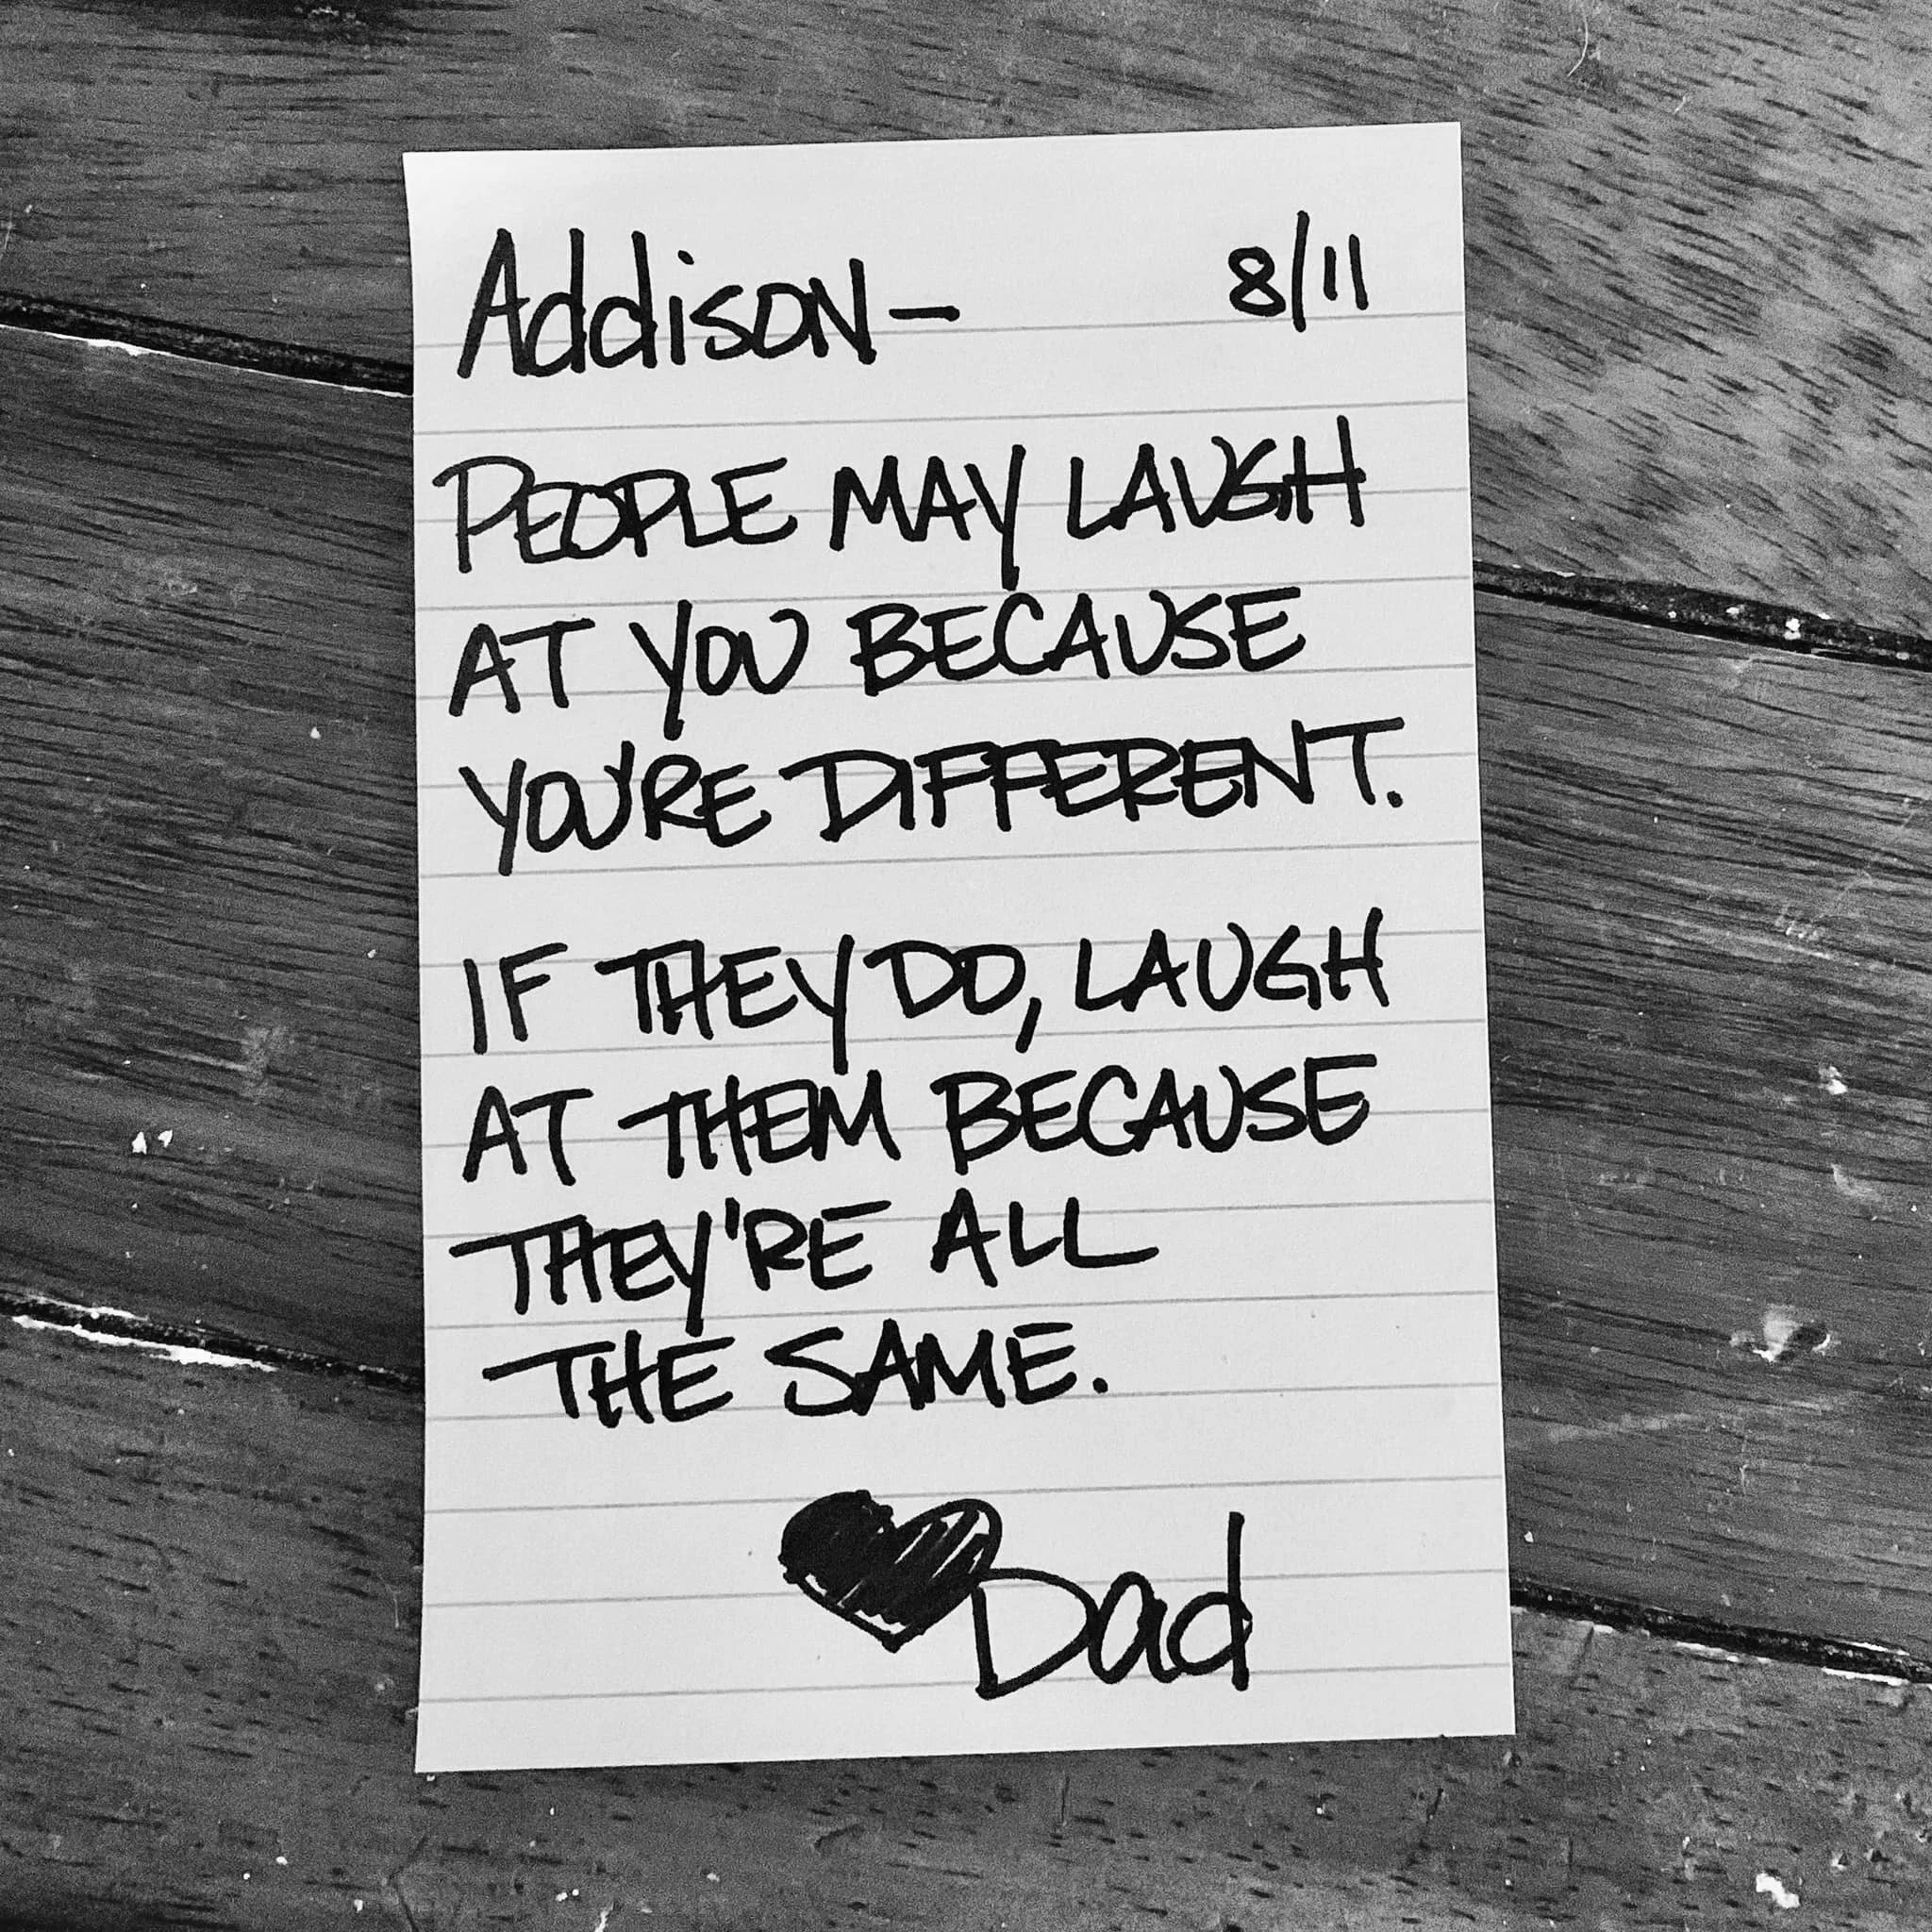 Addison — 8/11
PEOPLE MAY LAUGH
AT YOU BECAUSE
YOU'RE DIFFERENT.
IF THEY DO, LAUGH
AT THEM BECAUSE
THEY'RE ALL
THE SAME.
♥Dad